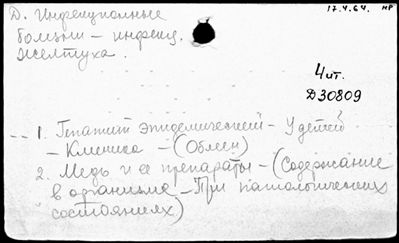 Д. Инфекционные
17.4.64. НР
болезни - инфекц.
желтуха.
Чит.
Д30809
1. Гепатит эпидемический - У детей
- Клиника - (Обмен)
2. Медь и ее препараты - (Содержание
в организме - При патологических
состояниях)